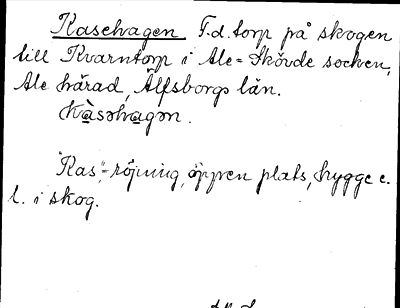 Kasehagen F.d. torp på skogen
till Kvarntorp i Ale-Skövde socken,
Ale härad, Älfsborgs län.
Kàsəhagən.
"Kas"-röjning, öppen plats, hygge e.
l. i skog.